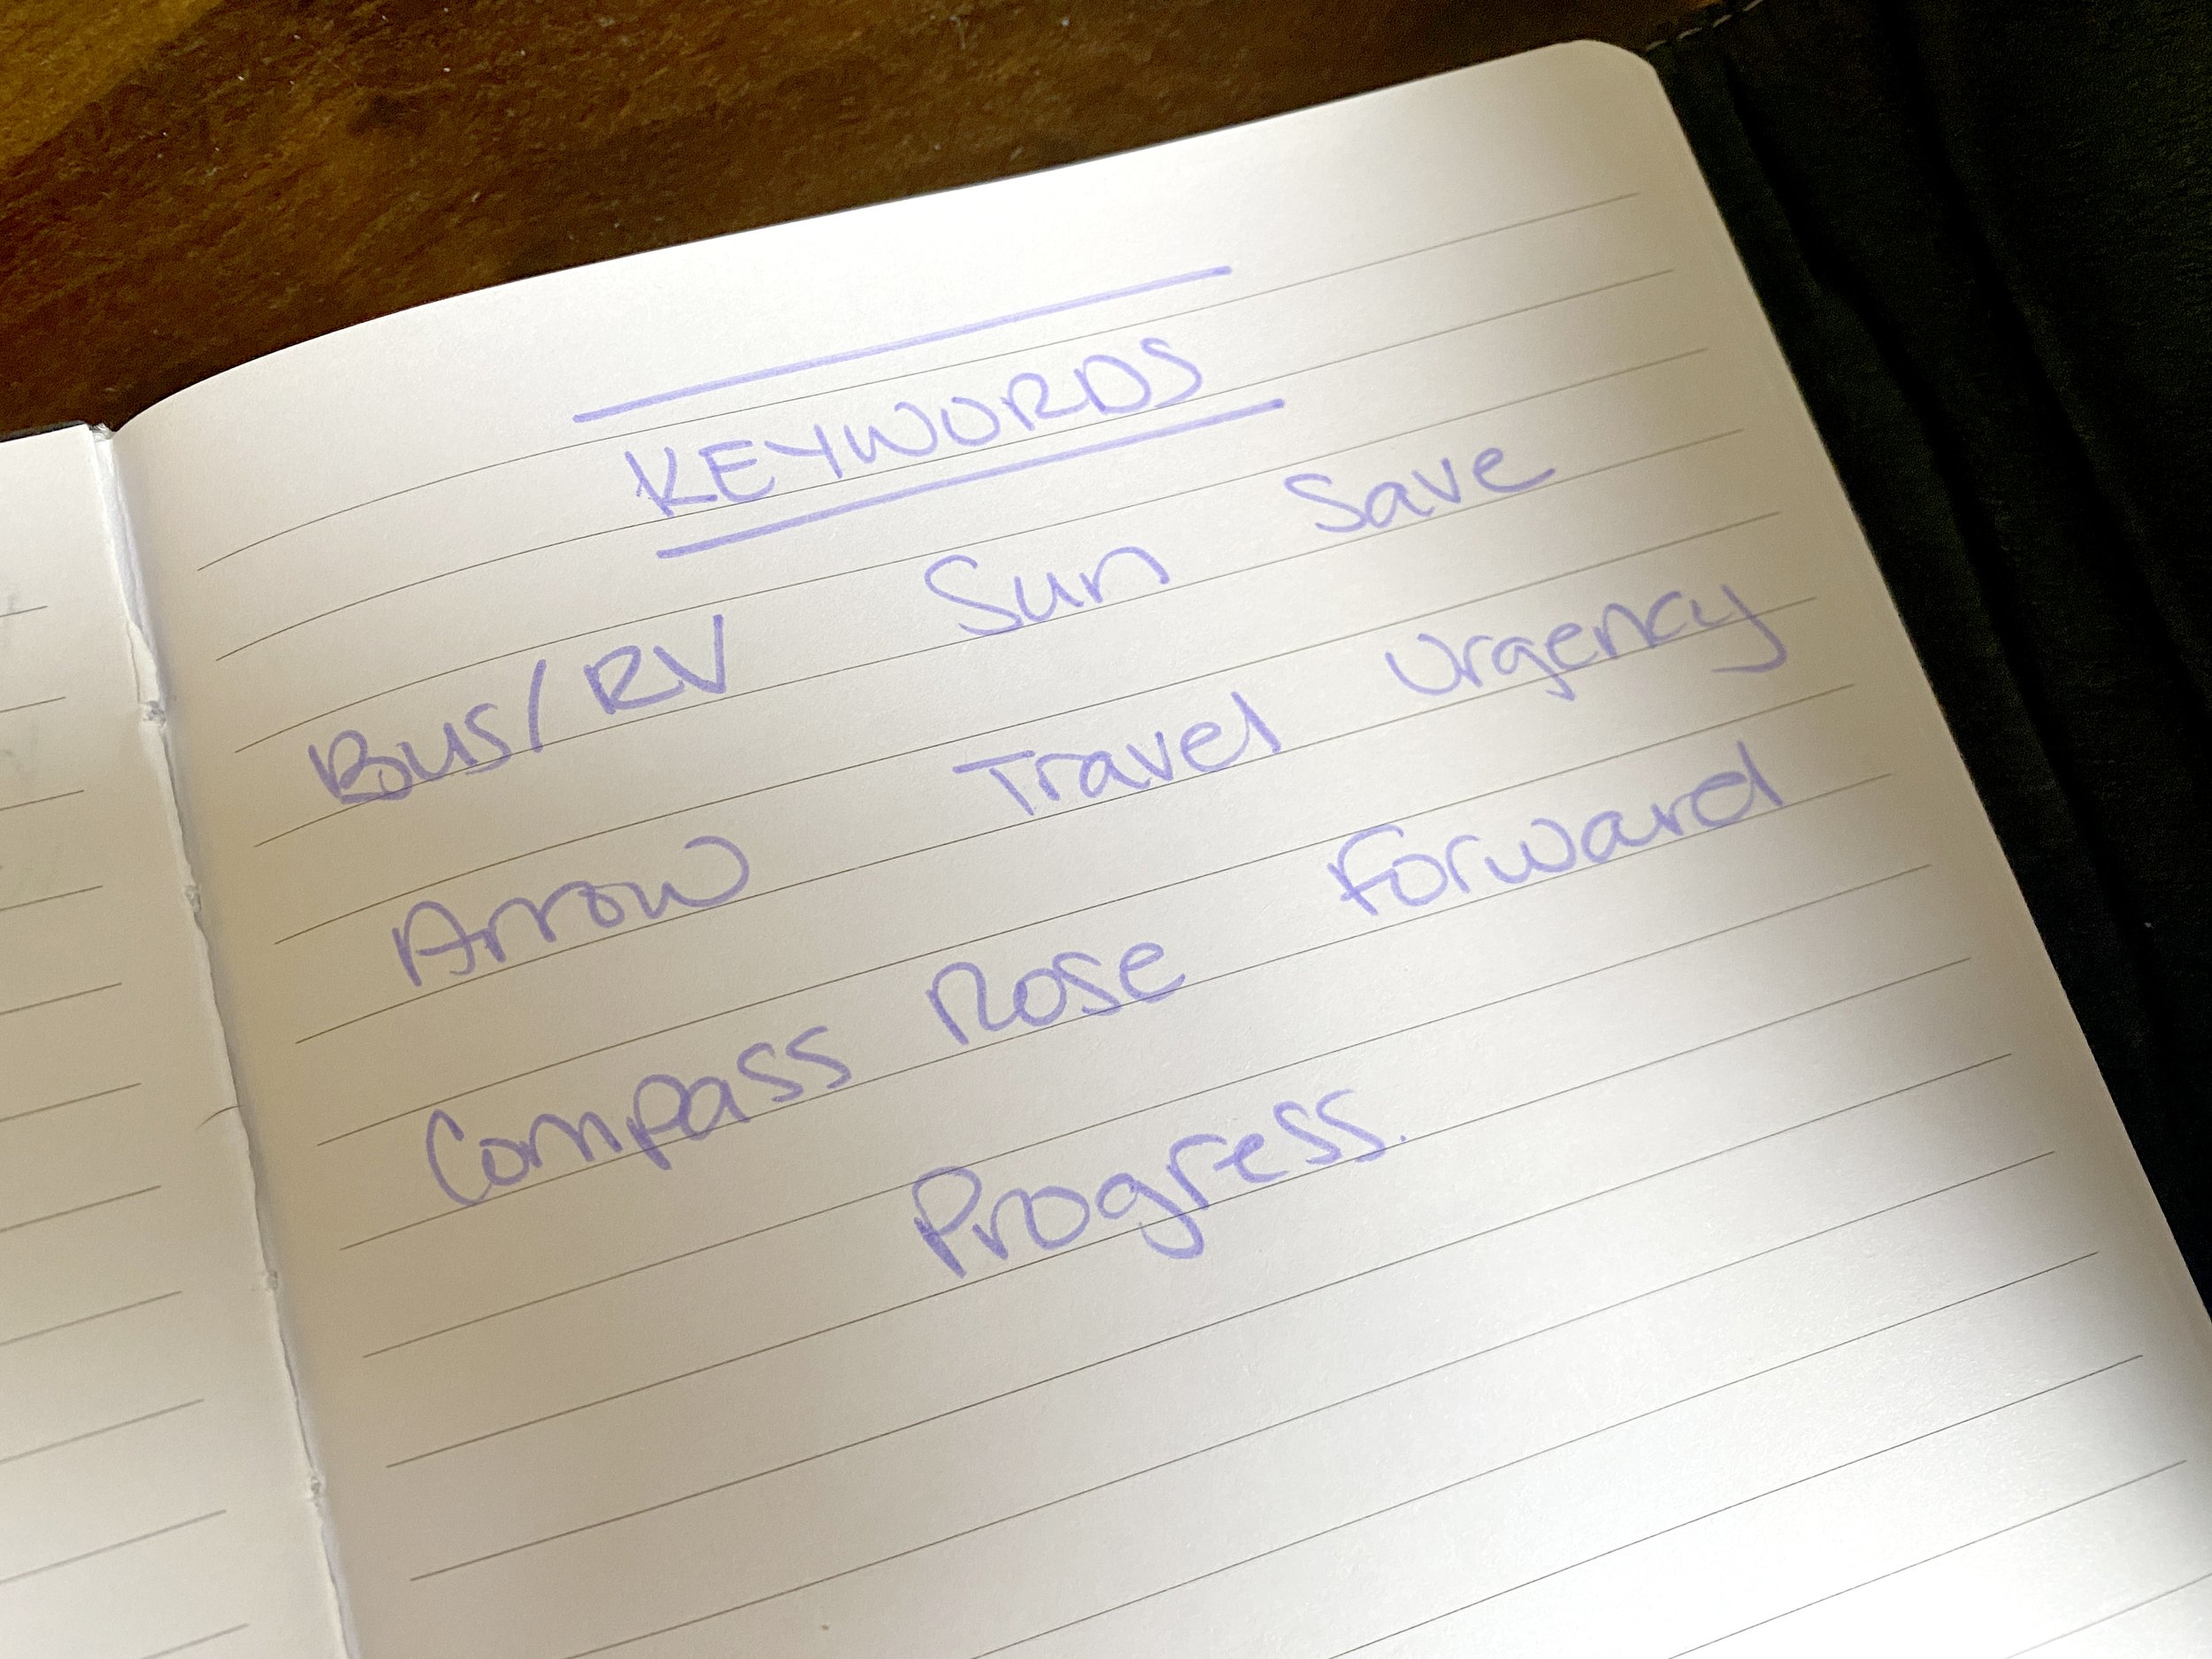 KEYWORDS
Bus/RV Sun Save
Arrow Travel Urgency
Compass Rose Forward
Progress.